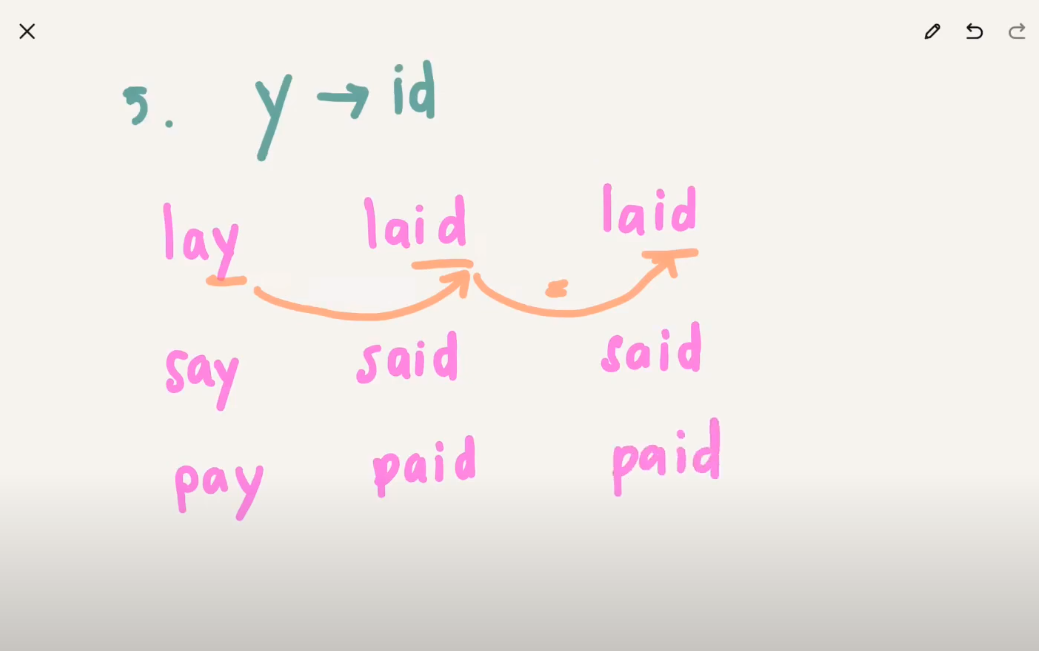 5. y → id
lay laid laid
=
say said said
pay paid paid